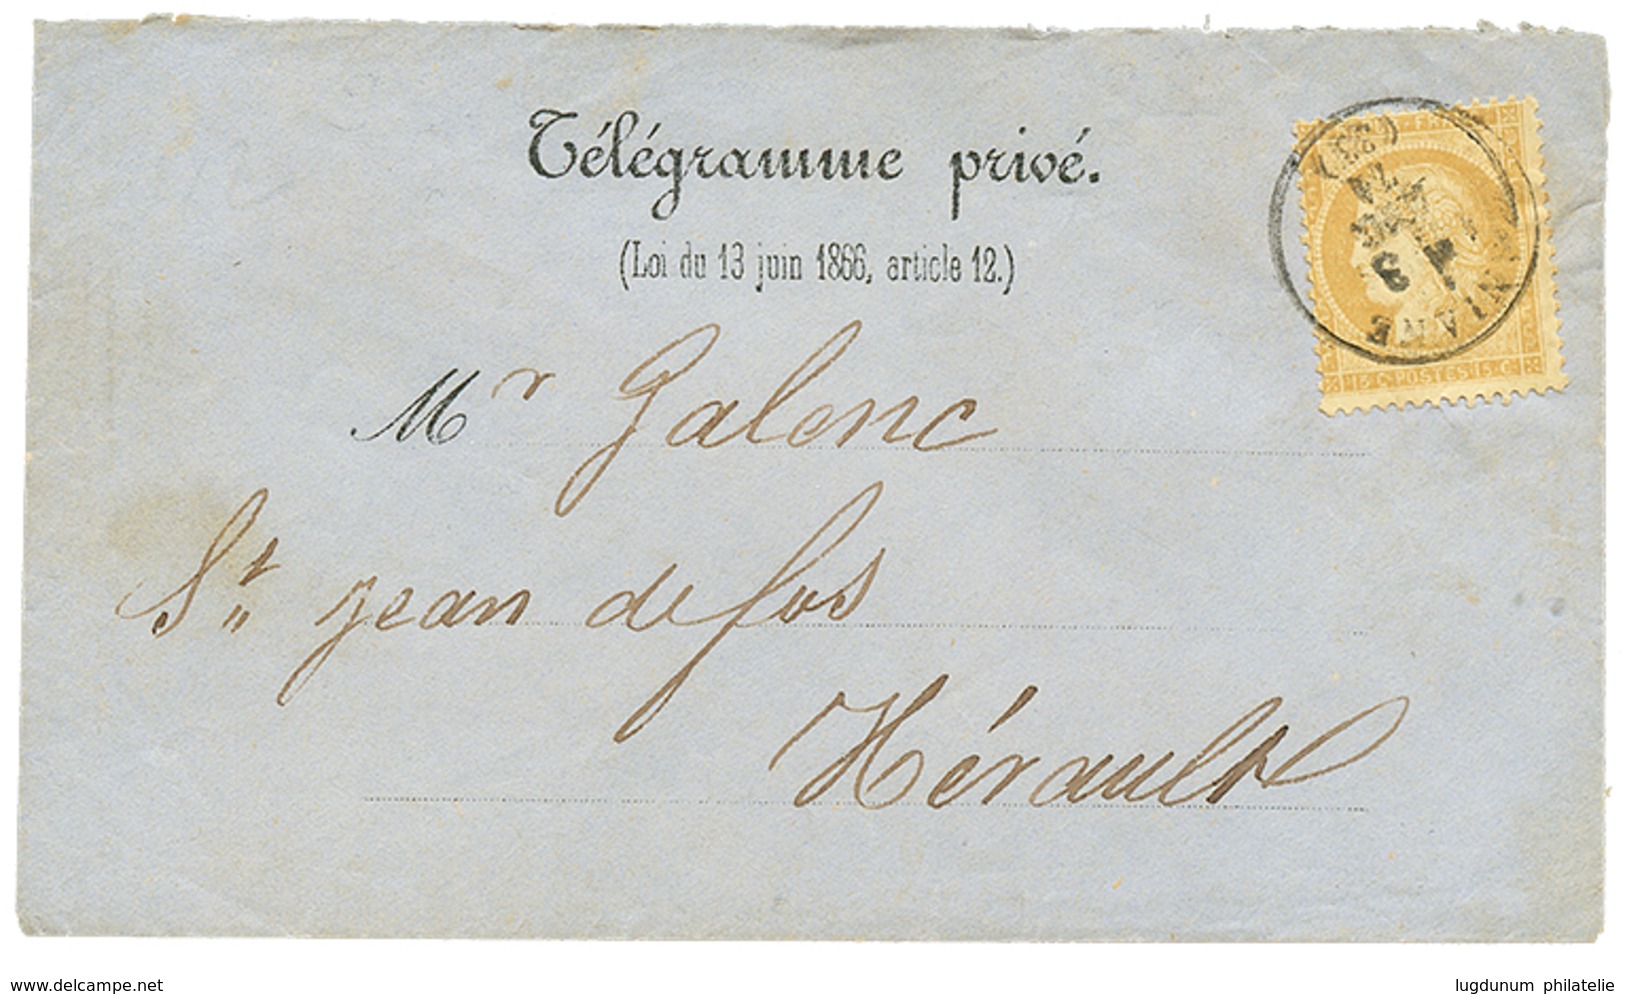 Télégramme privé.
(Loi du 13 juin 1866, article 12.)
Mr Galenc
St jean de fos
Hérault
ANIANE
(33)
3
74
15 C. POSTES 15 C.
www.delcampe.net
lugdunum philatelie